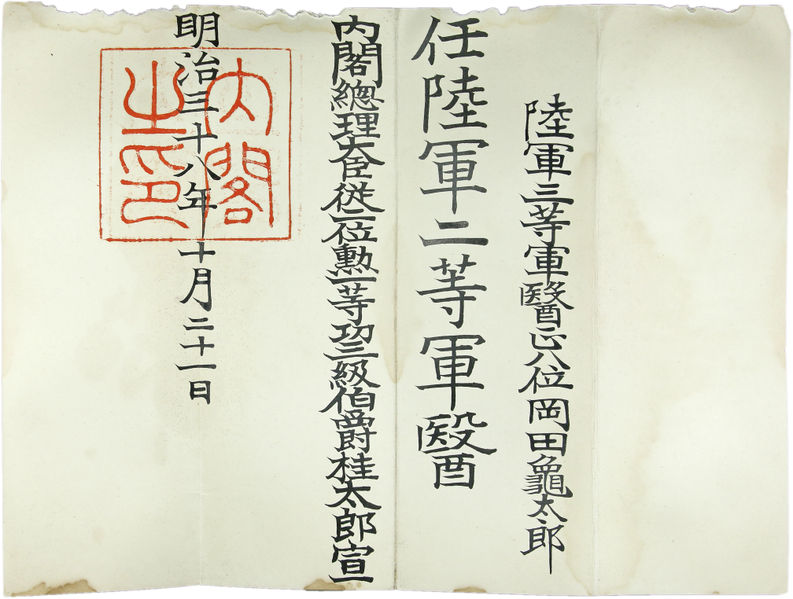 陸軍三等軍醫正八位岡田龜太郎
任陸軍二等軍醫
内閣總理大臣從二位勳一等功三級伯爵桂太郎宣
明治三十八年十月二十一日
内閣之印